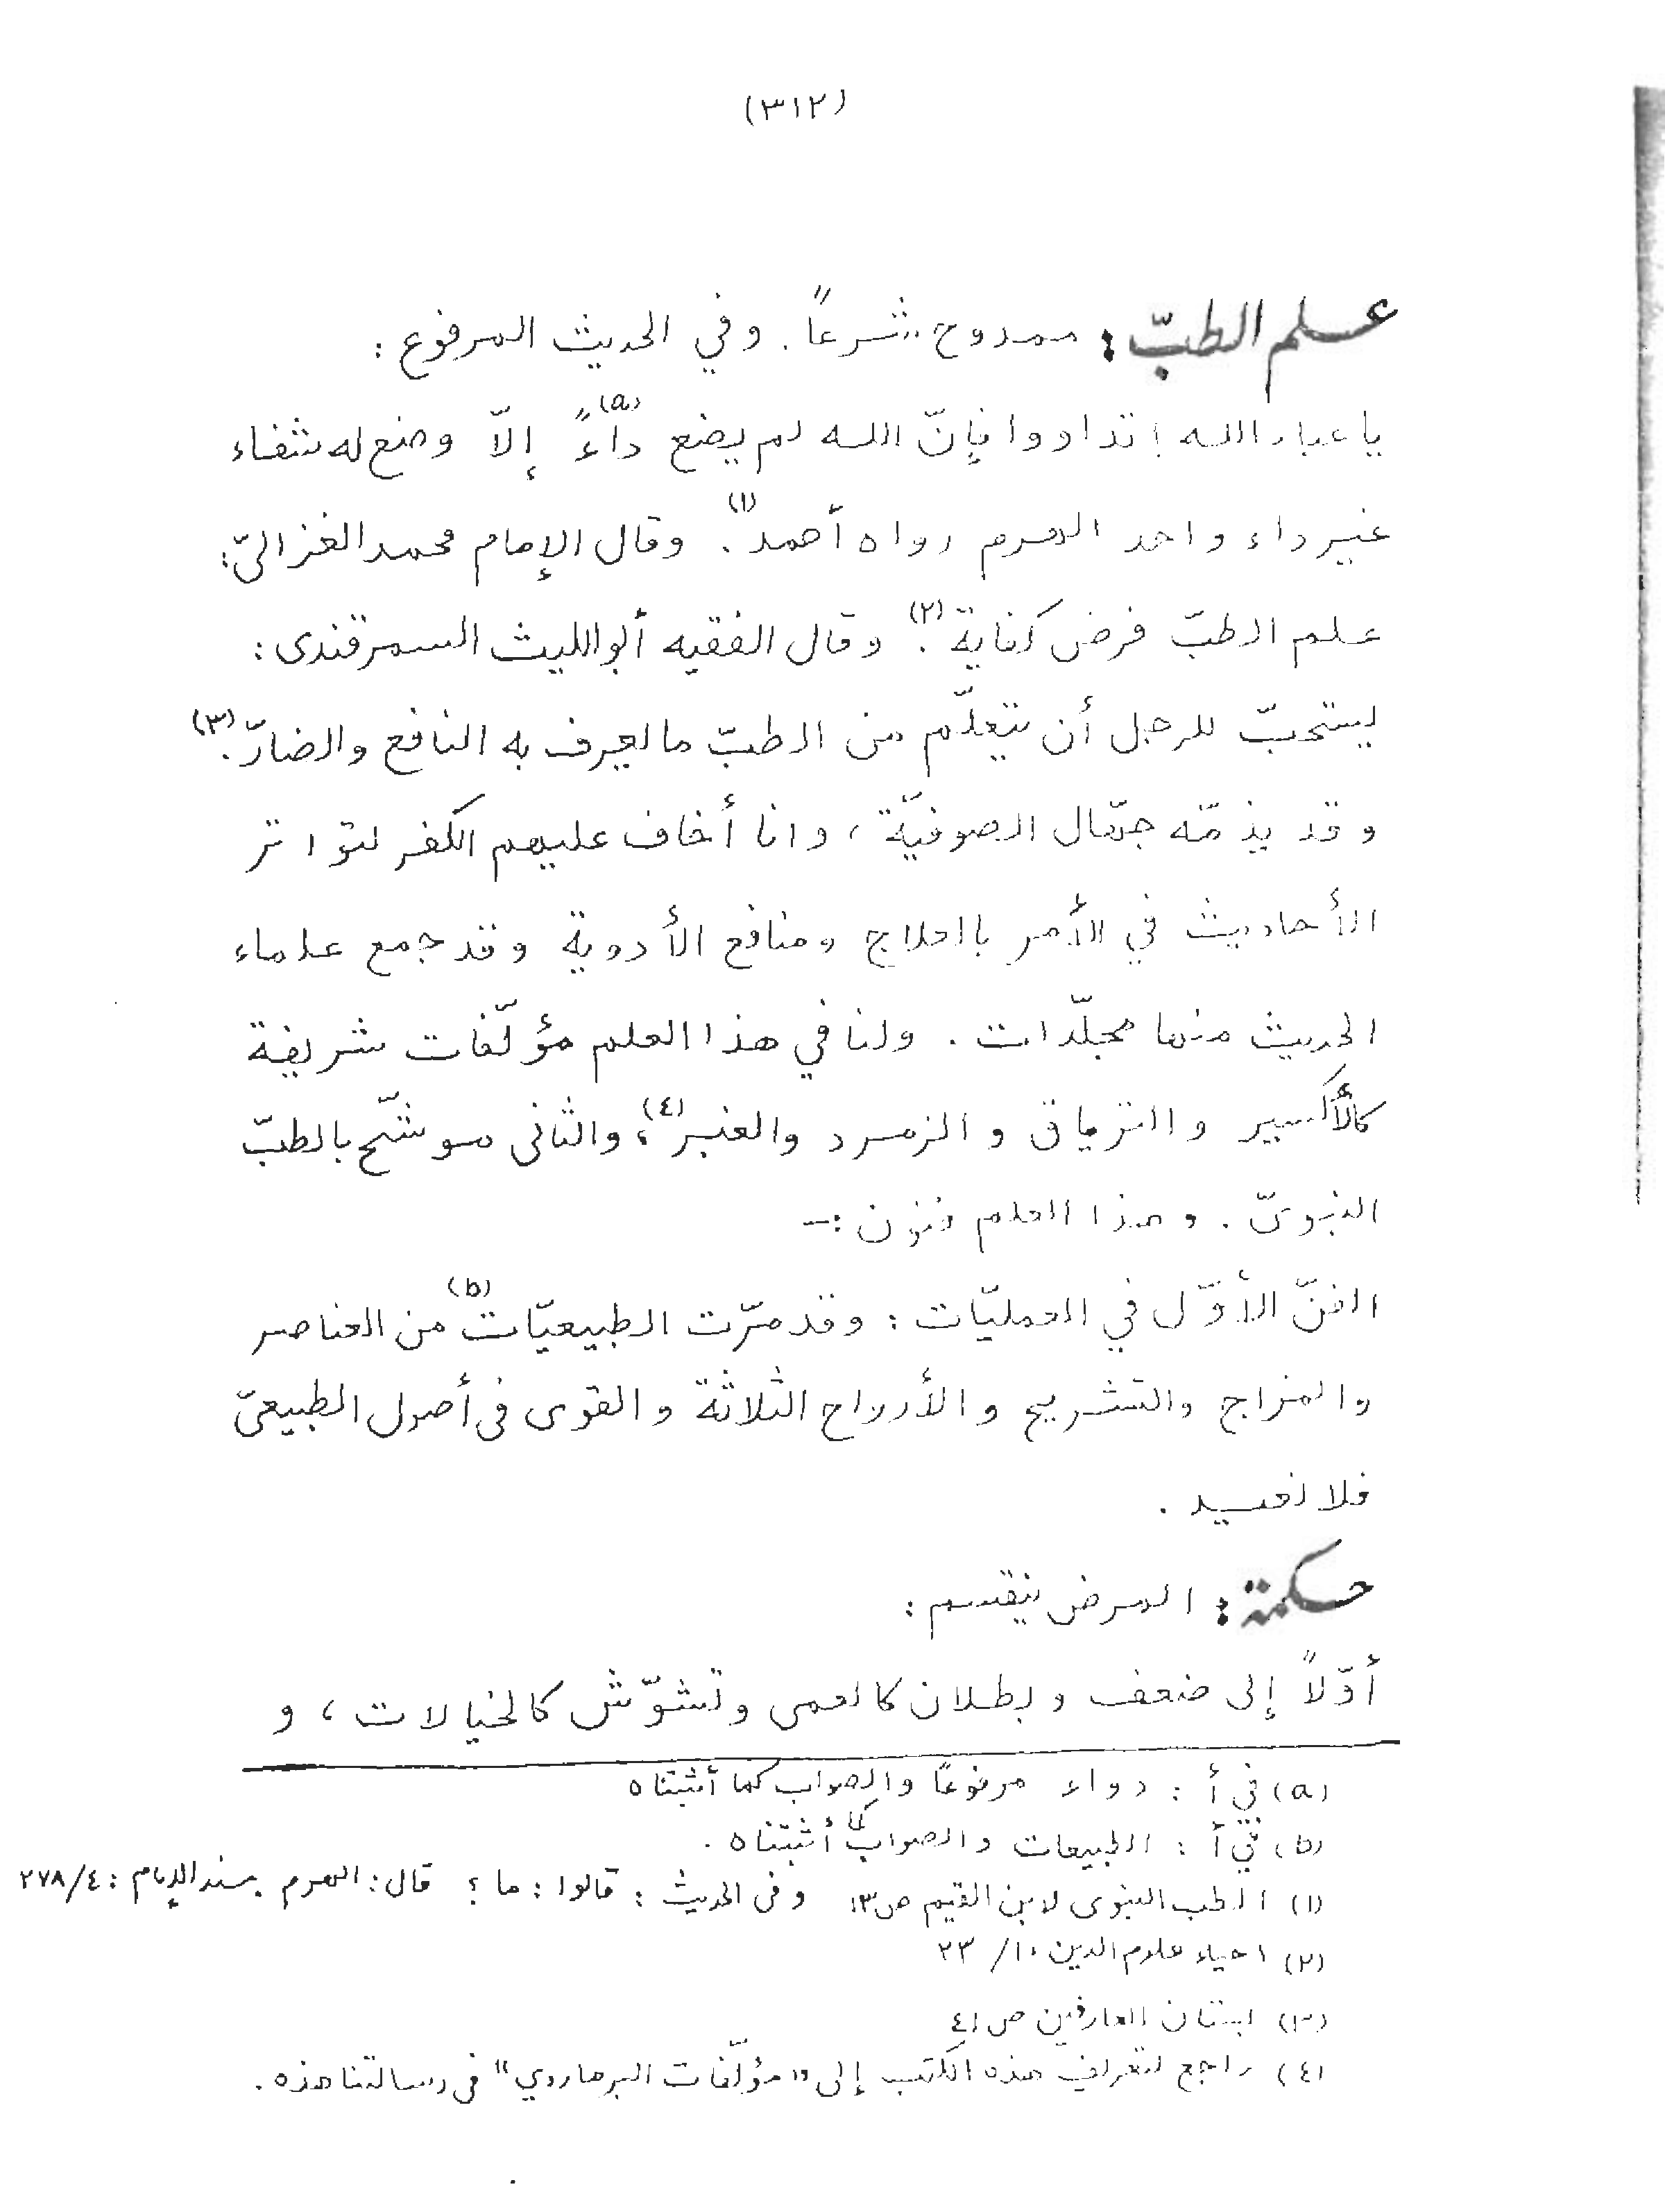 (٣١٢)
علم الطبّ: ممدوح شرعاً. وفي الحديث المرفوع:
يا عباد الله! تداووا فإنّ الله لم يضع داءً(a) إلاّ وضع له شفاء
غير داء واحد الهرم رواه أحمد(١). وقال الإمام محمد الغزاليّ:
علم الطبّ فرض كفاية(٢). وقال الفقيه أبو الليث السمرقندى:
يستحبّ للرجل أن يتعلّم من الطبّ ما يعرف به النافع والضارّ.(٣)
وقد يذمّه جهّال الصوفيّة، وانا أخاف عليهم الكفر لتواتر
الأحاديث في الأمر بالعلاج ومنافع الأدوية وقد جمع علماء
الحديث منها مجلّدات. ولنا في هذا العلم مؤلّفات شريفة
كالأكسير والترياق والزمرد والعنبر(٤)، والثانى موشّح بالطبّ
النبوىّ. وهذا العلم فنون :-
الفنّ الأوّل في العمليّات: وقد مرّت الطبيعيّات(b) من العناصر
والمزاج والتشريح والأرواح الثلاثة والقوى فى أصول الطبيعىّ
فلا نعيد.
حكمة: المرض ينقسم:
أوّلاً إلى ضعف وبطلان كالعمى وتشوّش كالخيالات، و
(a) في أ: دواء مرفوعًا والصواب كما أثبتناه
(b) في أ: الطبيعات والصواب كما أثبتناه.
(١) الطب النبوى لابن القيم ص١٣ وفى الحديث: قالوا: ما؟ قال: الهرم بسند الإمام: ٢٧٨/٤
(٢) احياء علوم الدين ١٠/ ٢٣
(٣) بستان العارفين ص٤١
(٤) راجع لتعرف هذه الكتب إلى "مؤلّفات البرهاروي" فى رسالتنا هذه.